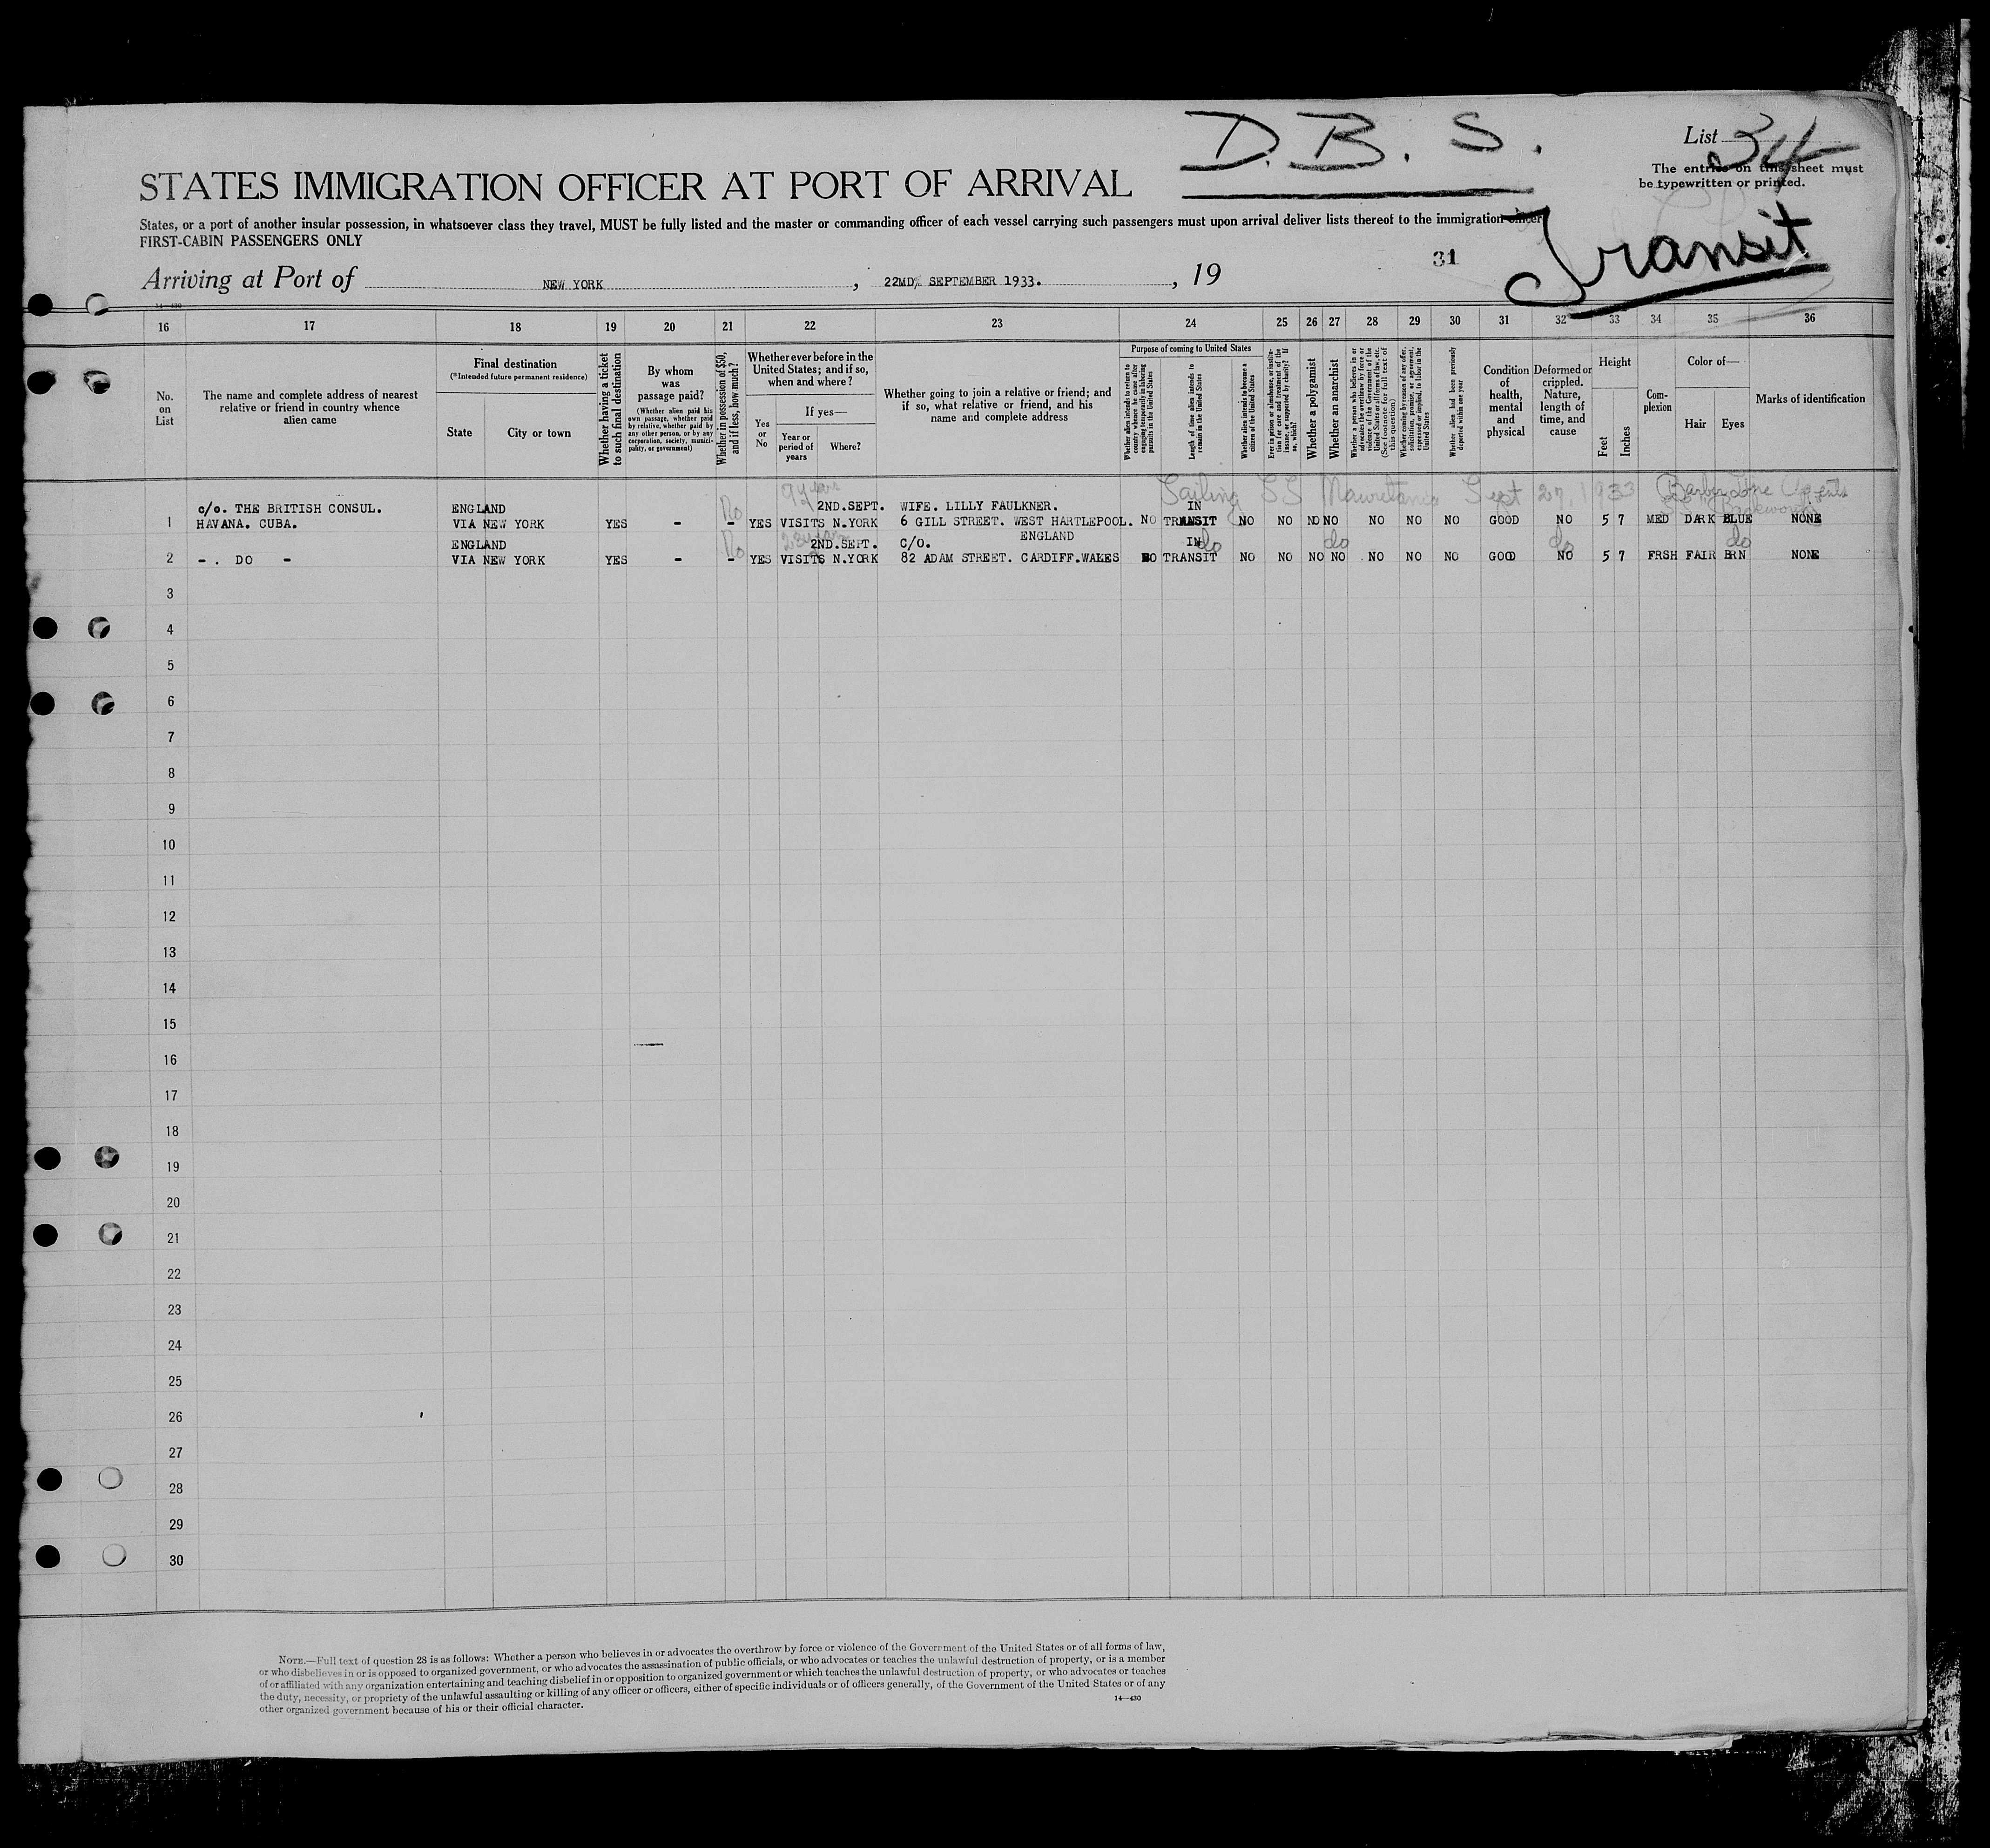 D.B.S.
List 34
The entries on this sheet must
be typewritten or printed.
STATES IMMIGRATION OFFICER AT PORT OF ARRIVAL
States, or a port of another insular possession, in whatsoever class they travel, MUST be fully listed and the master or commanding officer of each vessel carrying such passengers must upon arrival deliver lists thereof to the immigration officer
FIRST-CABIN PASSENGERS ONLY
Transit
31
Arriving at Port of NEW YORK , 22MD. SEPTEMBER 1933. , 19
14-430
16 17 18 19 20 21 22 23 24 25 26 27 28 29 30 31 32 33 34 35 36
No. on List
The name and complete address of nearest relative or friend in country whence alien came
Final destination
(*Intended future permanent residence)
State
City or town
Whether having a ticket to such final destination
By whom was passage paid?
(Whether alien paid his own passage, whether paid by relative, whether paid by any other person, or by any corporation, society, municipality, or government)
Whether in possession of $50, and if less, how much?
Whether ever before in the United States; and if so, when and where?
Yes or No
If yes—
Year or period of years
Where?
Whether going to join a relative or friend; and if so, what relative or friend, and his name and complete address
Purpose of coming to United States
Whether alien intends to return to country whence he came after engaging temporarily in laboring pursuits in the United States
Length of time alien intends to remain in the United States
Whether alien intends to become a citizen of the United States
Ever in prison or almshouse, or institution for care and treatment of the insane, or supported by charity? If so, which?
Whether a polygamist
Whether an anarchist
Whether a person who believes in or advocates the overthrow by force or violence of the Government of the United States or all forms of law, etc. (See footnote for full text of this question)
Whether coming by reason of any offer, solicitation, promise, or agreement, expressed or implied, to labor in the United States
Whether alien had been previously deported within one year
Condition of health, mental and physical
Deformed or crippled. Nature, length of time, and cause
Height
Feet
Inches
Complexion
Color of—
Hair
Eyes
Marks of identification
9 years
Sailing SS Mauretania Sept 27, 1933
c/o. THE BRITISH CONSUL. ENGLAND No 2ND.SEPT. WIFE. LILLY FAULKNER. IN
1 HAVANA. CUBA. VIA NEW YORK YES - - YES VISITS N.YORK 6 GILL STREET. WEST HARTLEPOOL. NO TRANSIT NO NO NO NO NO NO NO GOOD NO 5 7 MED DARK BLUE NONE
ENGLAND
ENGLAND No 2ND.SEPT. C/O. IN do do do do
2 - . DO - VIA NEW YORK YES - - YES VISITS N.YORK 82 ADAM STREET. CARDIFF.WALES NO TRANSIT NO NO NO NO NO NO NO GOOD NO 5 7 FRSH FAIR BRN NONE
3
4
5
6
7
8
9
10
11
12
13
14
15
16
17
18
19
20
21
22
23
24
25
26
27
28
29
30
NOTE.—Full text of question 28 is as follows: Whether a person who believes in or advocates the overthrow by force or violence of the Government of the United States or of all forms of law,
or who disbelieves in or is opposed to organized government, or who advocates the assassination of public officials, or who advocates or teaches the unlawful destruction of property, or is a member
of or affiliated with any organization entertaining and teaching disbelief in or opposition to organized government or which teaches the unlawful destruction of property, or who advocates or teaches
the duty, necessity, or propriety of the unlawful assaulting or killing of any officer or officers, either of specific individuals or of officers generally, of the Government of the United States or of any
other organized government because of his or their official character.
14-430